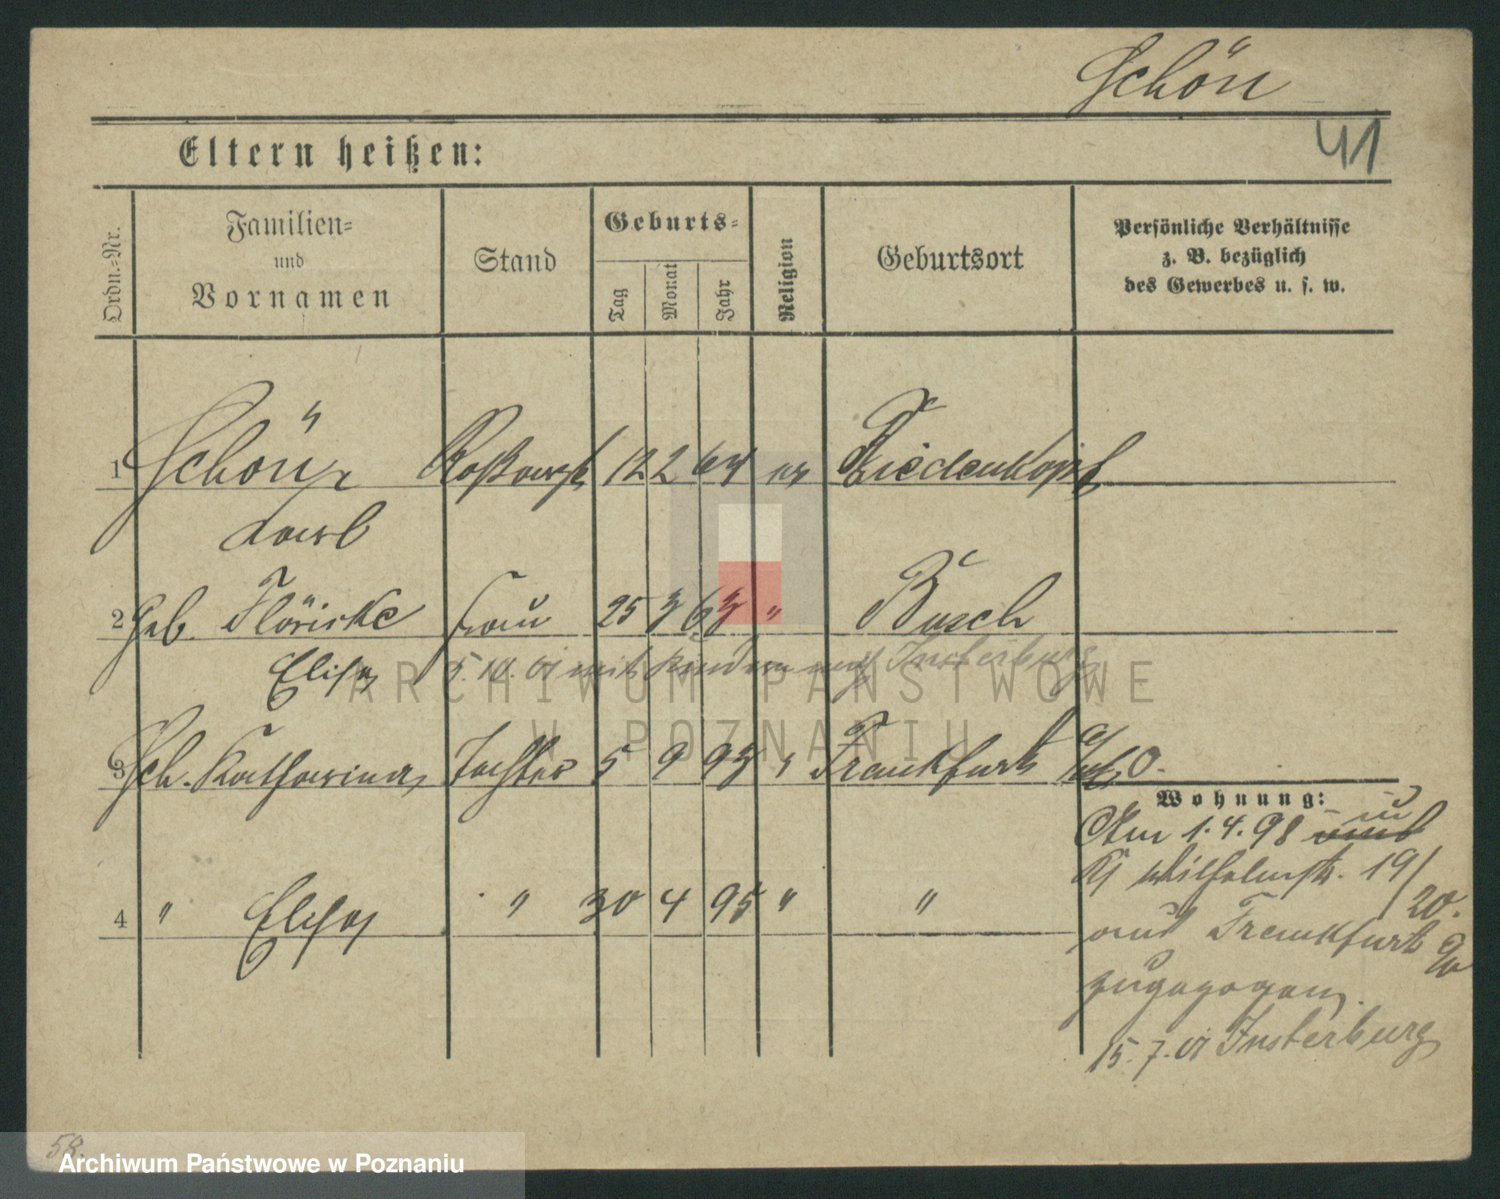 Schön
41
Eltern heißen:
Ordn.-Nr.
Familien-
und
Vornamen
Stand
Geburts-
Tag
Monat
Jahr
Religion
Geburtsort
Persönliche Verhältnisse
z. B. bezüglich
des Gewerbes u. s. w.
1 Schön, 12 2 64 ev Biedenkopf
2 geb. Flöricke Frau 25 3 63 " Busch
Elise 5.10.01 mit Kindern nach Insterburg
3 Sch. Katharina Tochter 5 9 93 " Frankfurt a/O.
Wohnung:
Am 1.4.98
Wilhelmstr. 19/
20.
4 " Elise " 30 4 95 " "
aus Frankfurt a/O
zugezogen.
15.7.01 Insterburg
58.
ARCHIWUM PAŃSTWOWE
W POZNANIU
Archiwum Państwowe w Poznaniu